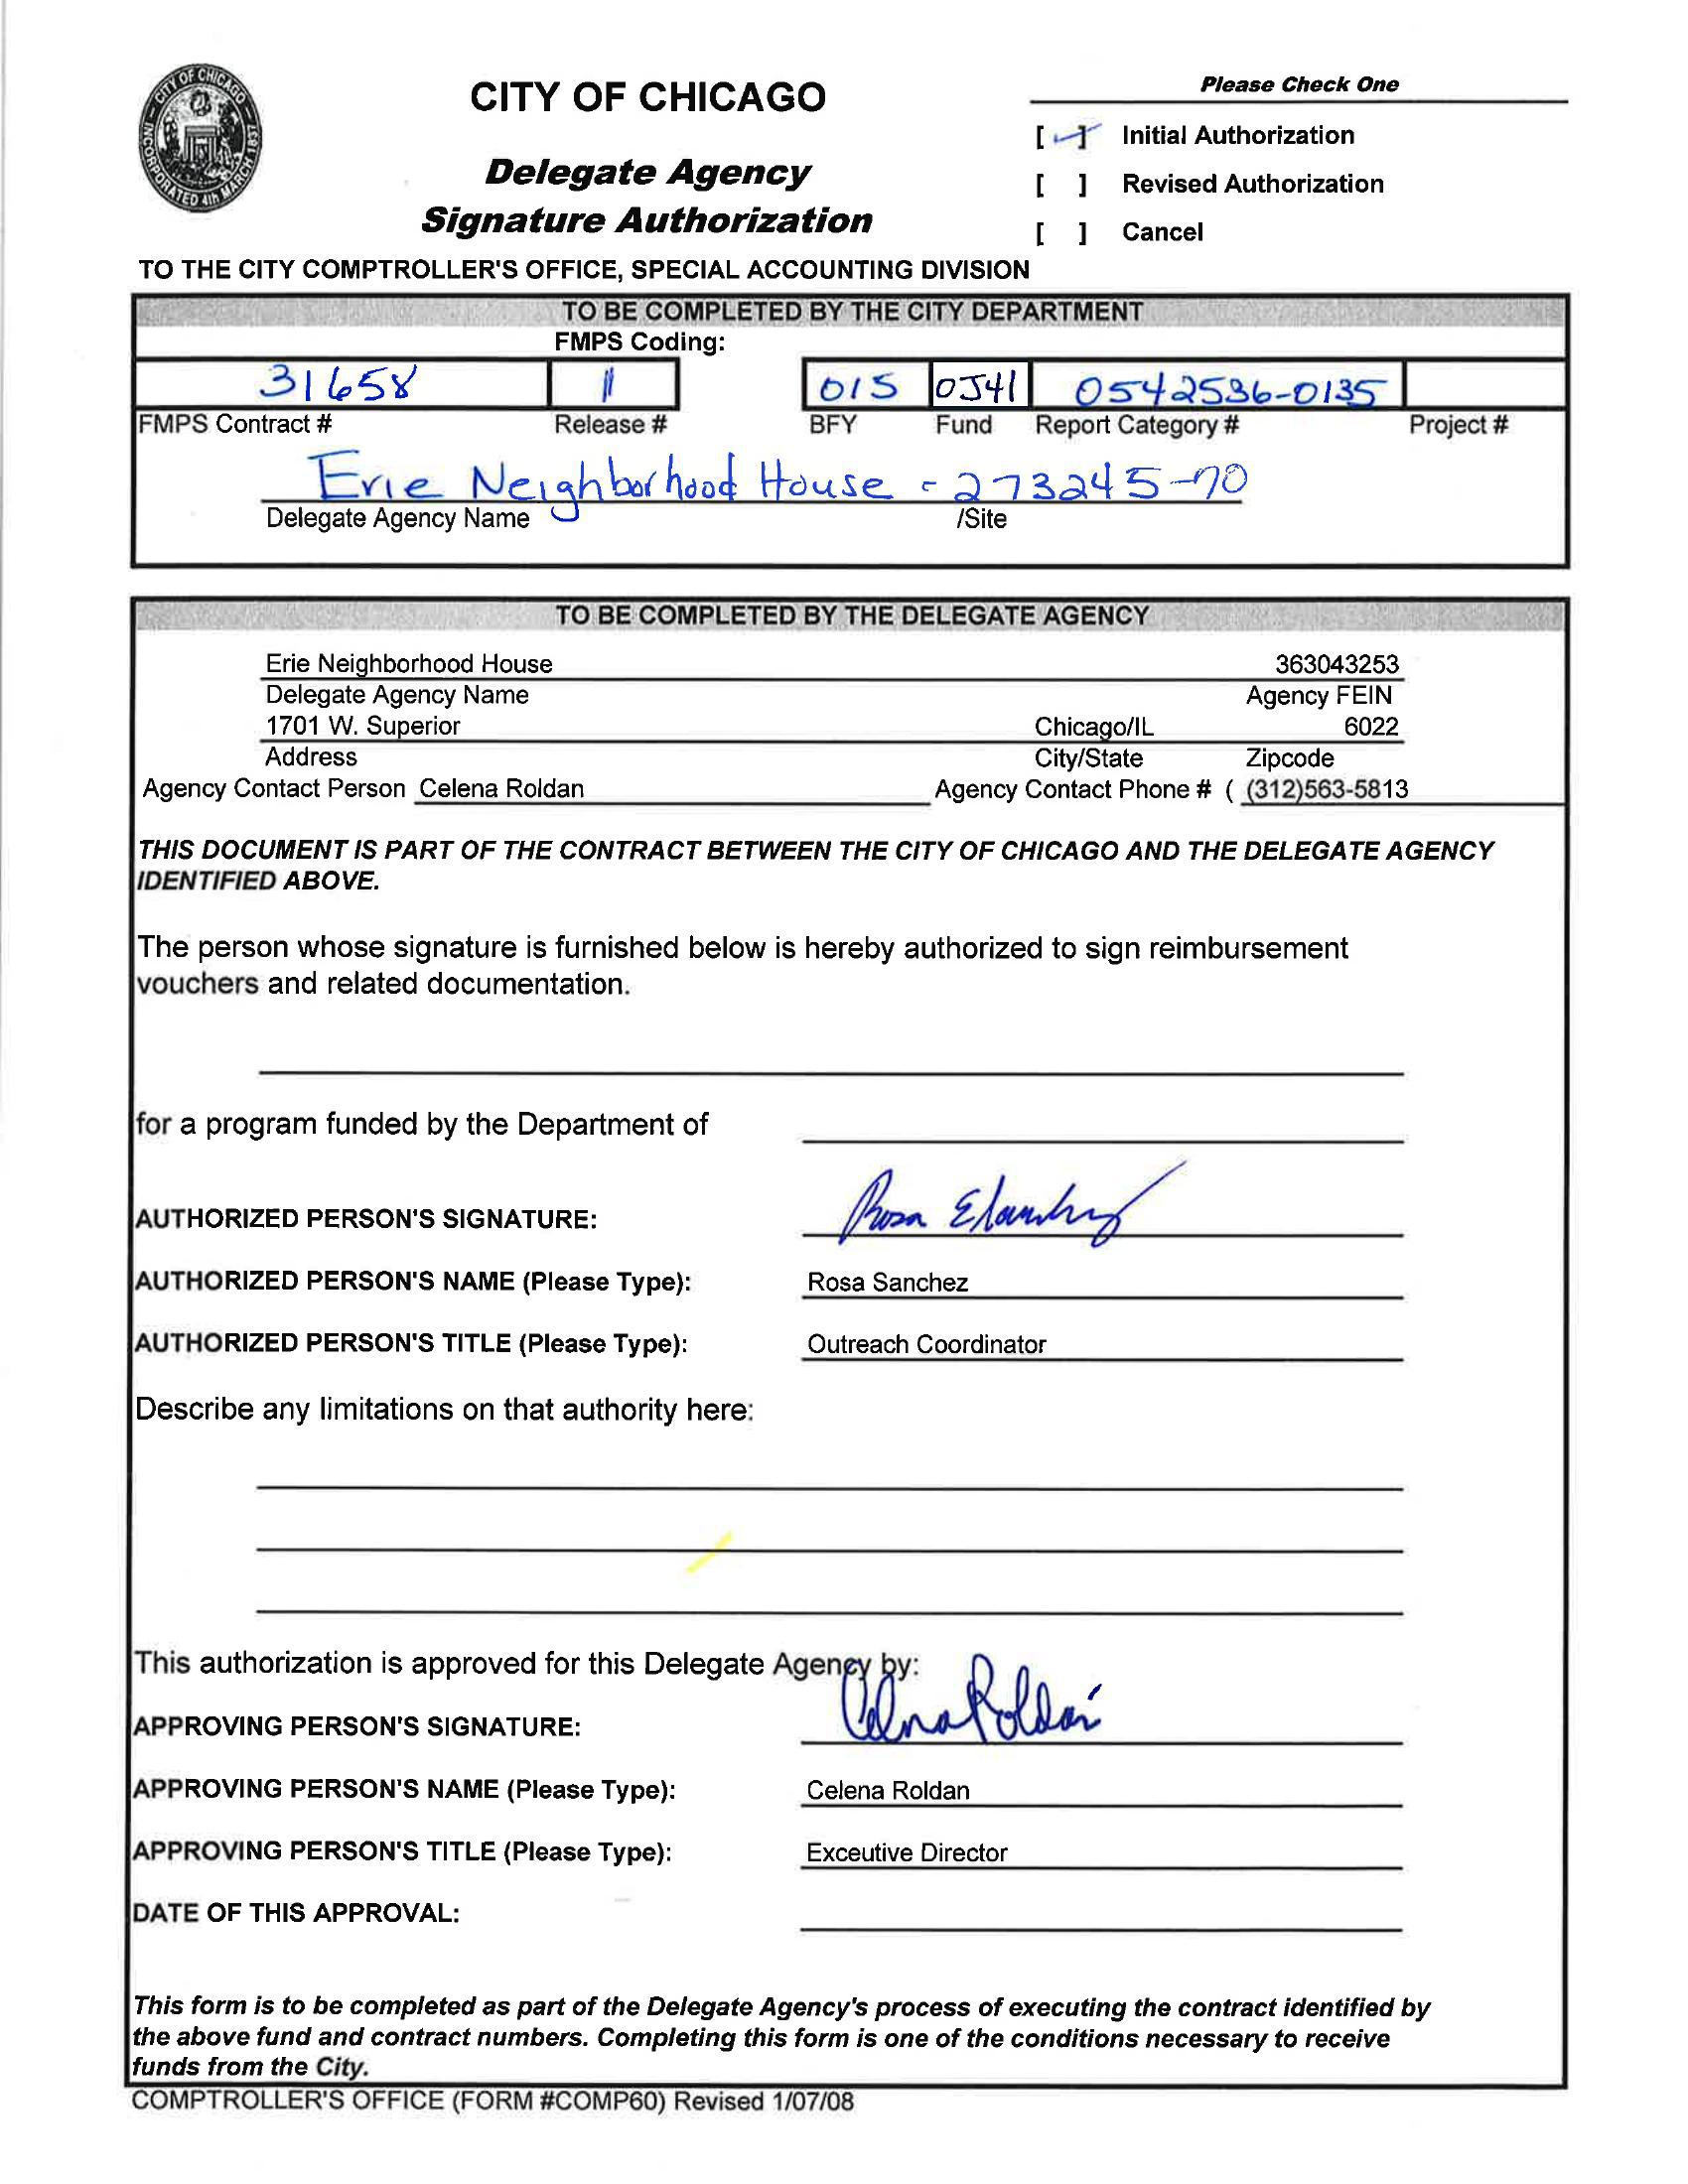 CITY OF CHICAGO
Delegate Agency
Signature Authorization
CITY OF CHICAGO
INCORPORATED 4th MARCH 1837
Please Check One
[✓] Initial Authorization
[ ] Revised Authorization
[ ] Cancel
TO THE CITY COMPTROLLER'S OFFICE, SPECIAL ACCOUNTING DIVISION
TO BE COMPLETED BY THE CITY DEPARTMENT
FMPS Coding:
31658 11 015 0J41 0542536-0135
FMPS Contract # Release # BFY Fund Report Category # Project #
Erie Neighborhood House - 273245-70
Delegate Agency Name /Site
TO BE COMPLETED BY THE DELEGATE AGENCY
Erie Neighborhood House 363043253
Delegate Agency Name Agency FEIN
1701 W. Superior Chicago/IL 6022
Address City/State Zipcode
Agency Contact Person Celena Roldan Agency Contact Phone # ( (312)563-5813
THIS DOCUMENT IS PART OF THE CONTRACT BETWEEN THE CITY OF CHICAGO AND THE DELEGATE AGENCY
IDENTIFIED ABOVE.
The person whose signature is furnished below is hereby authorized to sign reimbursement
vouchers and related documentation.
for a program funded by the Department of
AUTHORIZED PERSON'S SIGNATURE: Rosa
AUTHORIZED PERSON'S NAME (Please Type): Rosa Sanchez
AUTHORIZED PERSON'S TITLE (Please Type): Outreach Coordinator
Describe any limitations on that authority here:
This authorization is approved for this Delegate Agency by:
APPROVING PERSON'S SIGNATURE: Celena Roldán
APPROVING PERSON'S NAME (Please Type): Celena Roldan
APPROVING PERSON'S TITLE (Please Type): Exceutive Director
DATE OF THIS APPROVAL:
This form is to be completed as part of the Delegate Agency's process of executing the contract identified by
the above fund and contract numbers. Completing this form is one of the conditions necessary to receive
funds from the City.
COMPTROLLER'S OFFICE (FORM #COMP60) Revised 1/07/08